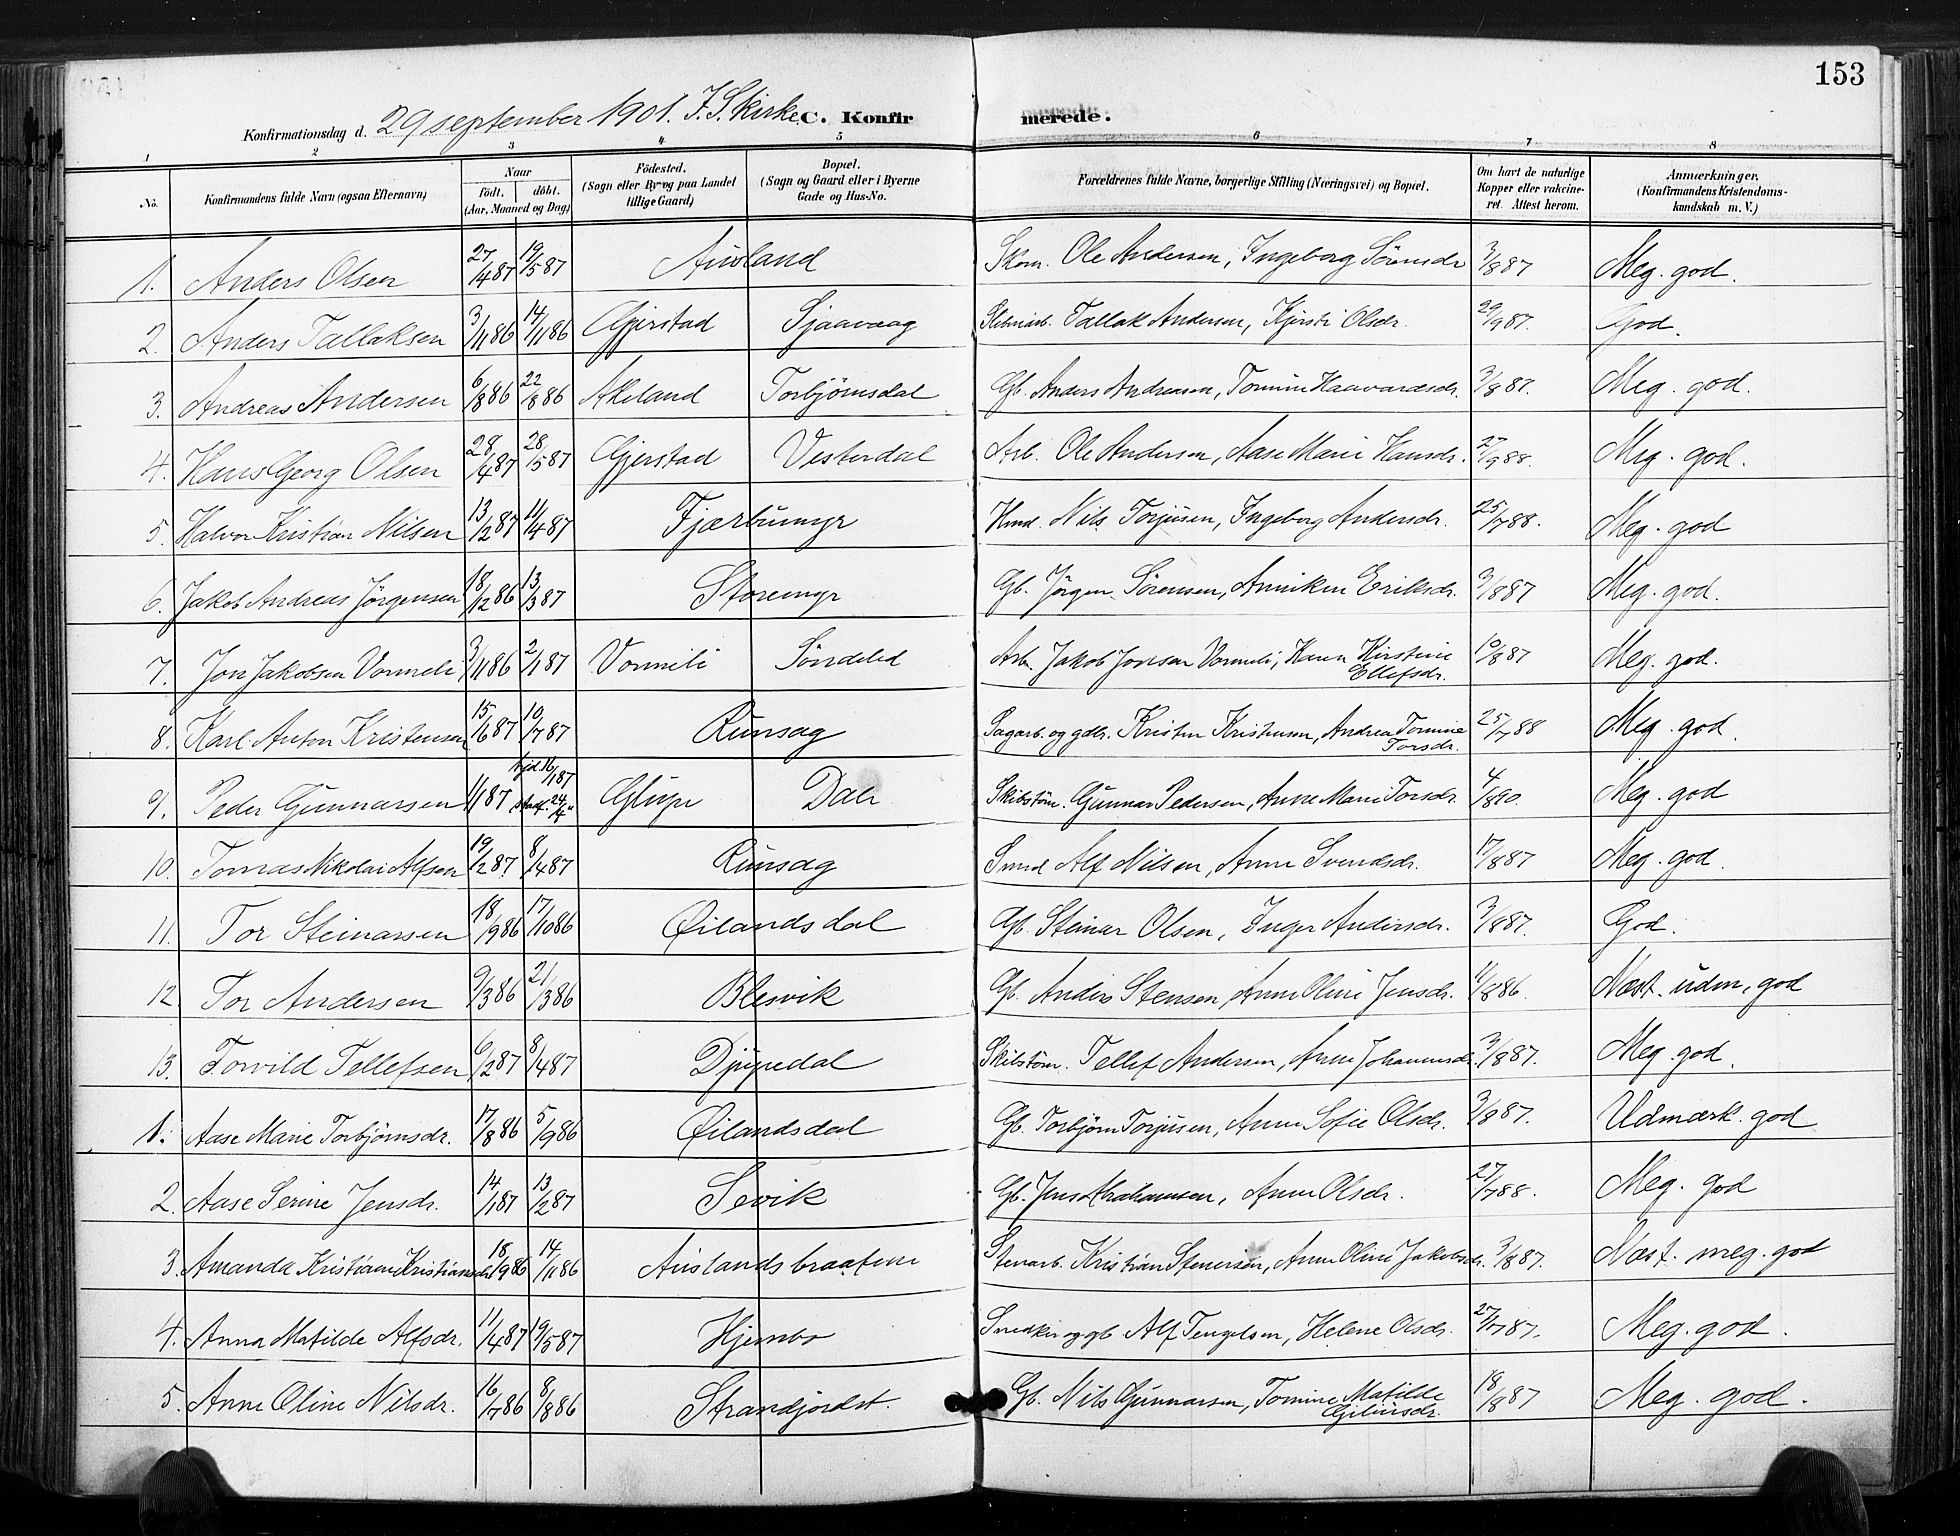 153
Konfirmationsdag d. 29 september 1901. I. S. Kirke. C. Konfirmerede.
1 2 3 4 5 6 7 8
No. Konfirmandens fulde Navn (ogsaa Efternavn) Naar født. døbt. (Aar, Maaned og Dag) Fødested. (Sogn eller By og paa Landet tillige Gaard) Bopæl. (Sogn og Gaard eller i Byerne Gade og Hus-No. Forældrenes fulde Navne, borgerlige Stilling (Næringsvei) og Bopæl. Om havt de naturlige Kopper eller vakcineret. Attest herom. Anmærkninger. (Konfirmandens Kristendomskundskab m. V.)
1. Anders Olsen 27/4 87 19/5 87 Ausland Skom. Ole Andersen, Ingeborg Sørensdr 3/8 87 Meg. god.
2. Anders Tallaksen 3/11 86 14/11 86 Gjerstad Sjaavaag Tallak Andersen, Kjersti Olsdr. 29/9 87. God.
3. Andreas Andersen 6/8 86 22/8 86 Akeland Torbjørnsdal Gb. Anders Andreasen, Tomine Haavardsdr. 3/8 87. Meg. god.
4. Hans Georg Olsen 28/4 87 28/5 87 Gjerstad Vesterdal Arb. Ole Andersen, Aase Marie Hansdr. 27/9 88. Meg. god.
5. Halvor Kristian Nilsen 13/2 87 11/4 87 Fjærbumyr Hmd. Nils Torjusen, Ingeborg Andersdr. 25/7 88. Meg. god
6. Jakob Andreas Jørgensen 18/12 86 13/3 87 Storemyr Gb. Jørgen Sørensen, Anniken Eriksdr. 9/8 87 Meg. god.
7. Jon Jakobsen Vormeli 3/11 86 2/1 87 Vormeli Søndeled Arb. Jakob Jonsen Vormeli, Karen Kirstine Ellefsdr. 10/8 87 Meg. god.
8. Karl Anton Kristensen 15/6 87 10/7 87 Runsag Sagarb. og gdbr. Kristen Kristensen, Andrea Tomine Torsdr. 25/7 88 Meg. god.
9. Peder Gunnarsen 1/1 87 hjd. 16/1 87 stadf. 24/4 " Glupe Dale Skibstøm. Gunnar Pedersen, Anne Marie Torsdr. 4/8 90. Meg. god
10. Tomas Nikolai Alfsen 19/2 87. 8/4 87 Runsag Smed Alf Nilsen, Anne Svendsdr. 17/8 87 Meg. god.
11. Tor Steinarsen 18/9 86 17/10 86 Øilandsdal Gb. Steinar Olsen, Inger Andersdr. 3/8 87. God.
12. Tor Andersen 9/3 86 21/3 86 Blesvik Gb. Anders Stensen, Anne Oline Jensdr. 11/8 86. Næst. udm. god
13. Torvild Tellefsen 6/2 87 8/4 87 Djupedal Skibstøm. Tellef Andersen, Anne Johannesdr. 3/8 87. Meg. god.
1. Aase Marie Torbjørnsdr. 17/8 86 5/9 86 Øilandsdal Gb. Torbjørn Torjusen, Anne Sofie Olsdr. 3/8 87. Udmærk. god
2. Aase Serine Jensdr. 14/1 87 13/2 87 Sevik Gb. Jens Abrahamsen, Anne Olsdr. 27/7 88. Meg. god
3. Amanda Kristiane Kristiansdr 18/9 86 14/11 86 Auslandsbraatene Stenarb. Kristian Stenersen, Anne Oline Jakobsdr. 3/8 87. Næst. meg. god
4. Anna Matilde Alfsdr. 11/4 87 19/5 87 Hjembo Snedker og gb. Alf Tengelsen, Helene Olsdr. 27/7 87. Meg. god.
5. Anne Oline Nilsdr. 16/7 86 8/8 86 Strandjordet. Gb. Nils Gunnarsen, Tomine Matilde Gjeruisdr. 18/8 87 Meg. god.